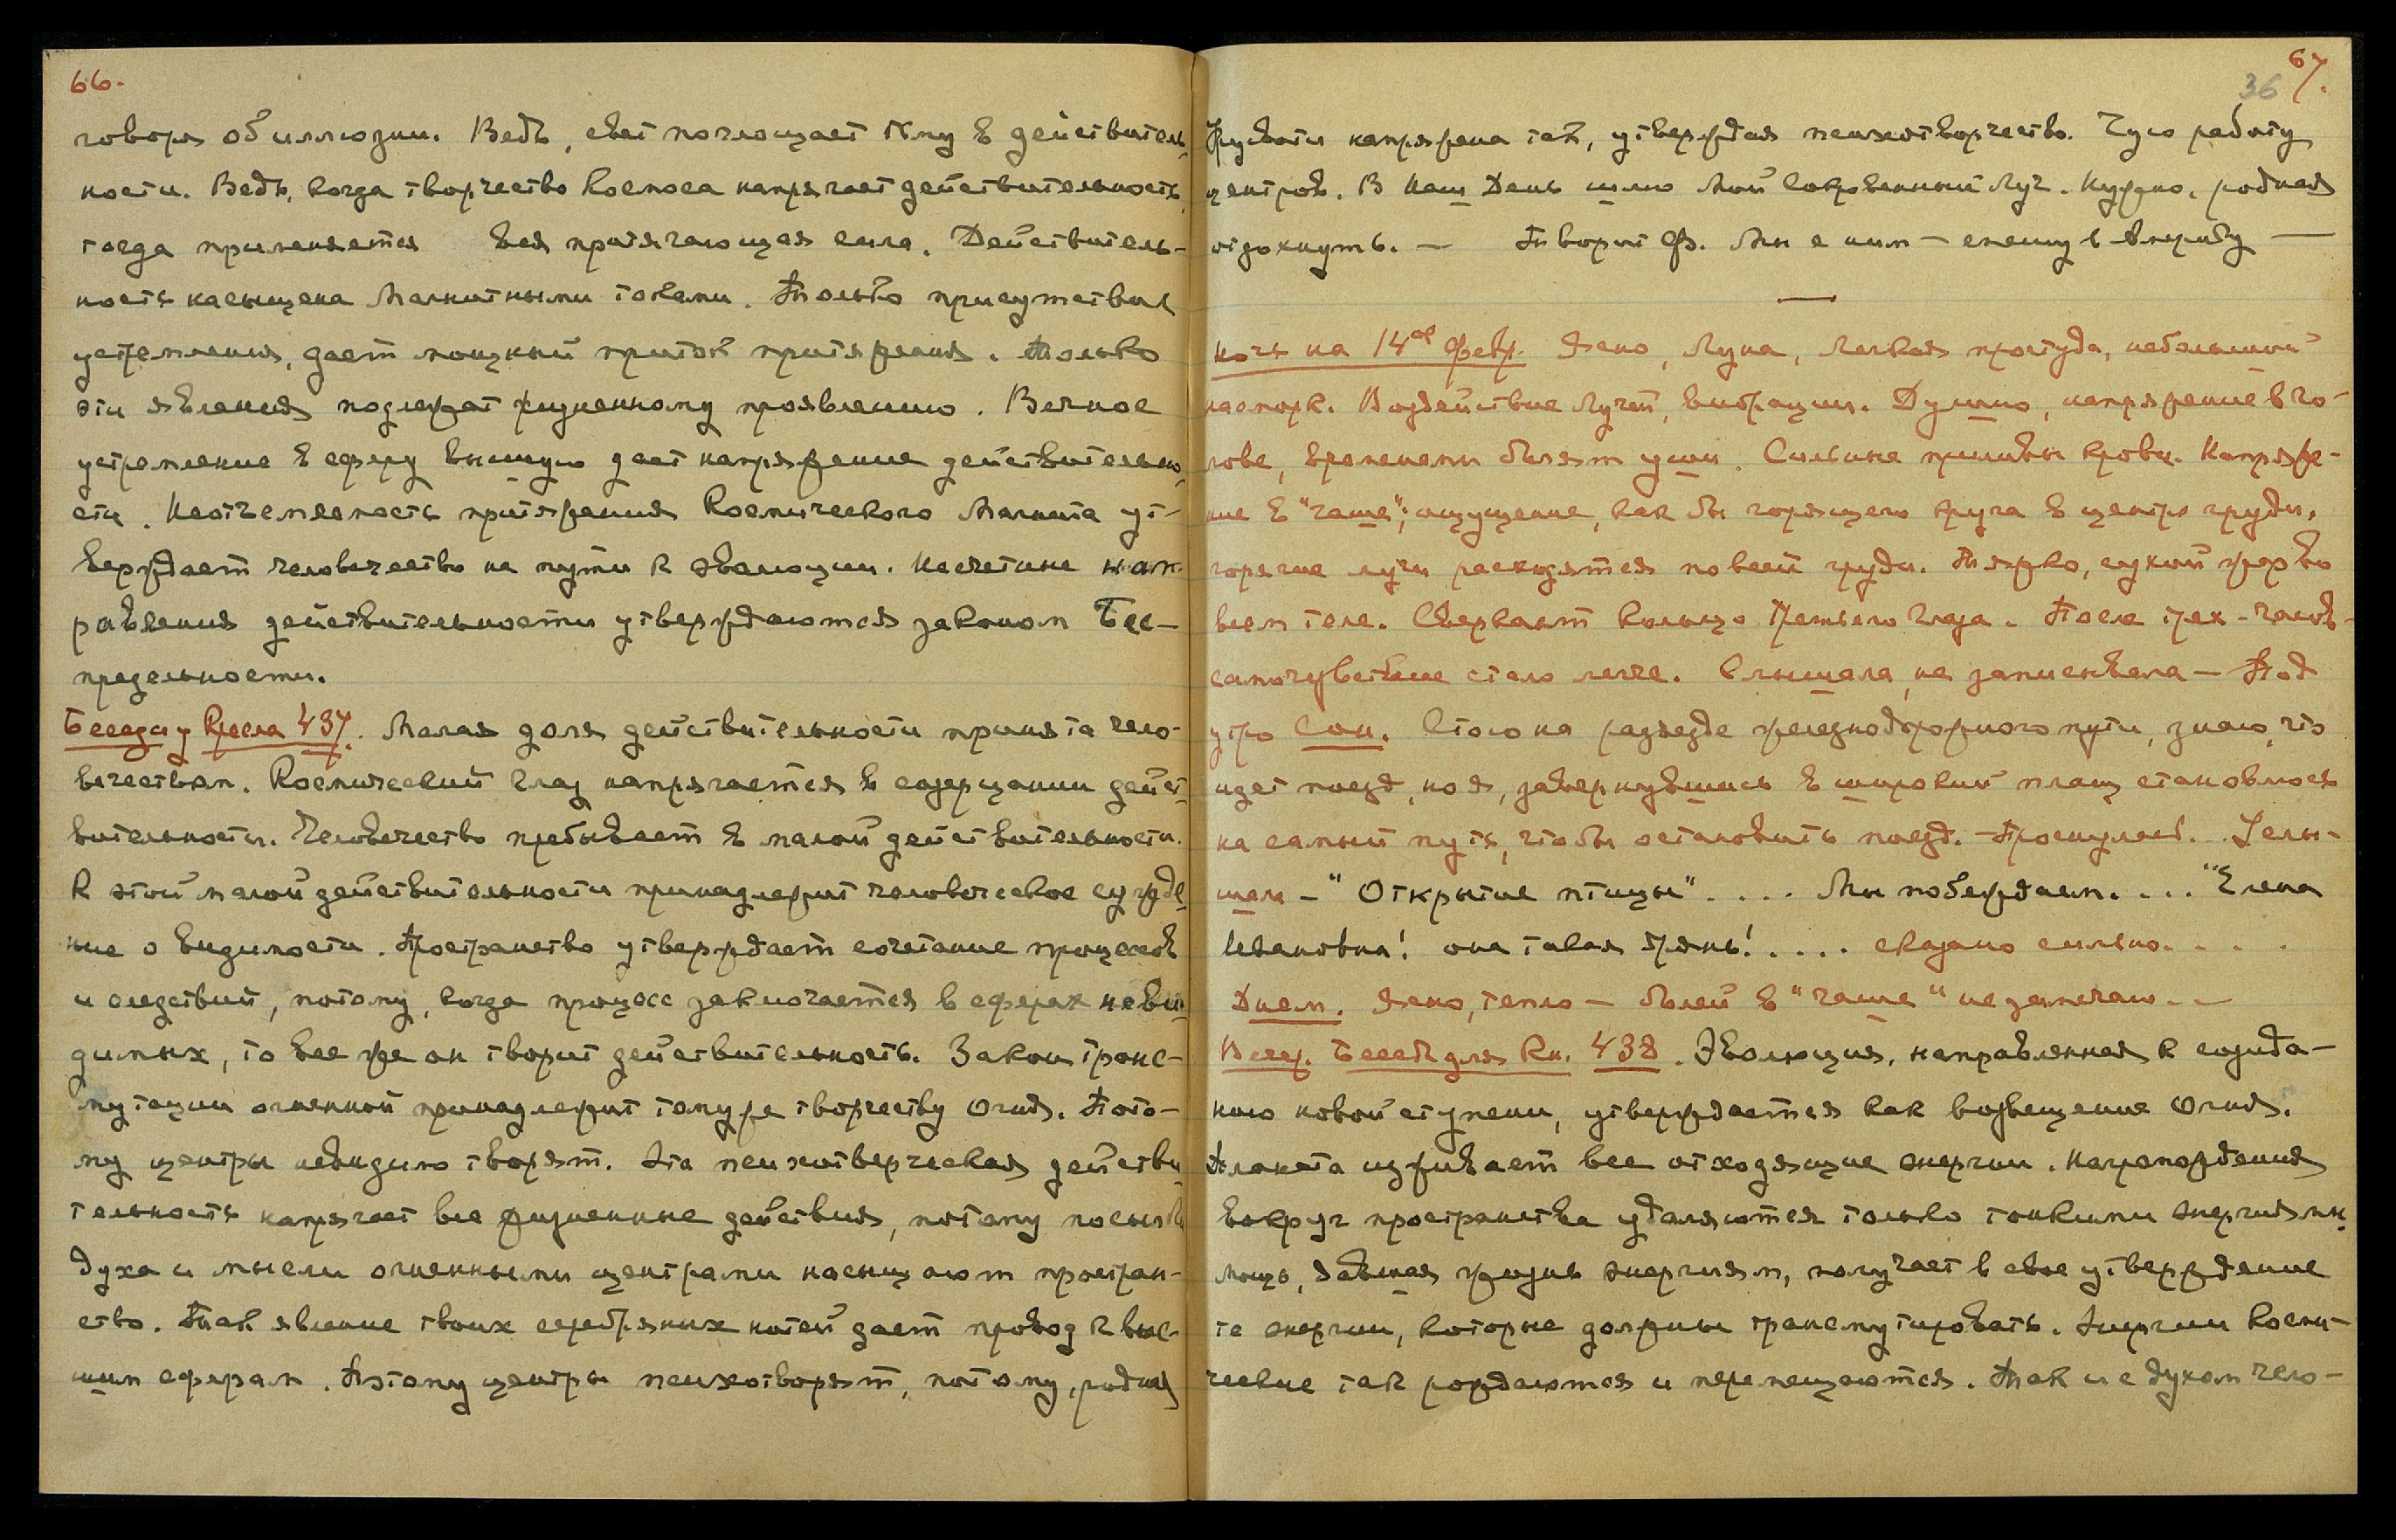 66.
говоря об иллюзии. Ведь, свет поглощает тьму в действитель-
ности. Ведь, когда творчество Космоса напрягает действительность,
тогда применяется вся притягающая сила. Действитель-
ность насыщена магнитными токами. Только присутствие
устремления, дает мощный приток притяжения. Только
эти явления подлежат жизненному проявлению. Вечное
устремление в сферу высшую дает напряжение действительно-
сти. Неотъемлемость притяжения Космического Магнита ут-
верждает человечество на пути к эволюции. Несчетные нап-
равления действительности утверждаются законом Бес-
предельности.
Беседа у Кресла 437. Малая доля действительности принята чело-
вечеством. Космический глаз напрягается в созерцании дейст-
вительности. Человечество пребывает в малой действительности.
К этой малой действительности принадлежит человеческое сужде-
ние о видимости. Пространство утверждает сочетание процессов
и следствий, потому, когда процесс заключается в сферах неви-
димых, то все же он творит действительность. Закон транс-
мутации огненной принадлежит тому же творчеству Огня. Пото-
му центры невидимо творят. Эта психотворческая действи-
тельность напрягает все жизненные действия, потому посылки
духа и мысли огненными центрами насыщают простран-
ство. Так явление твоих серебряных нитей дает провод к выс-
шим сферам. Потому центры психотворят, потому, родная
67.
36
Урусвати напряжена так, утверждая психотворчество. Чую работу
центров. В Наш День шлю Мой Сокровенный Луч. Нужно, родная
отдохнуть. — Творит Ф. Мы с ним —
—
Ночь на 14ое Февр. Ясно, Луна, Легкая простуда, небольшой
насморк. Воздействие Лучей, вибрации. Душно, напряжение в го-
лове, временами болят уши. Сильные приливы крови. Напряже-
ние в "чаше"; ощущение, как бы горящего круга в центре груди,
горячие лучи расходятся по всей груди. Тяжко, сухой жар во
всем теле. Сверкает кольцо Третьего Глаза. После трех часов
самочувствие стало легче. Слышала, не записывала — Под
утро Сон. Стою на разъезде железнодорожного пути, знаю, что
идет поезд, но я, завернувшись в широкий плащ становлюсь
на самый путь, чтобы остановить поезд. Проснулась. .. Услы-
шала — "Открытие птицы" .... Мы побеждаем. ... "Елена
Ивановна! она такая дрянь! .... сказано сильно. ....
Днем. Ясно, тепло — болей в "чаше" не замечаю. —
Вечер. Бесед. для Кн. 438. Эволюция, направленная к созида-
нию новой ступени, утверждается как возвещение Огня.
Планета изживает все отходящие энергии. Нагромождения
вокруг пространства удаляются только тонкими энергиями.
Мощь, давшая жизнь энергиям, получает в свое утверждение
те энергии, которые должны трансмутировать. Энергии Косми-
ческие так рождаются и перемещаются. Так и с духом чело-